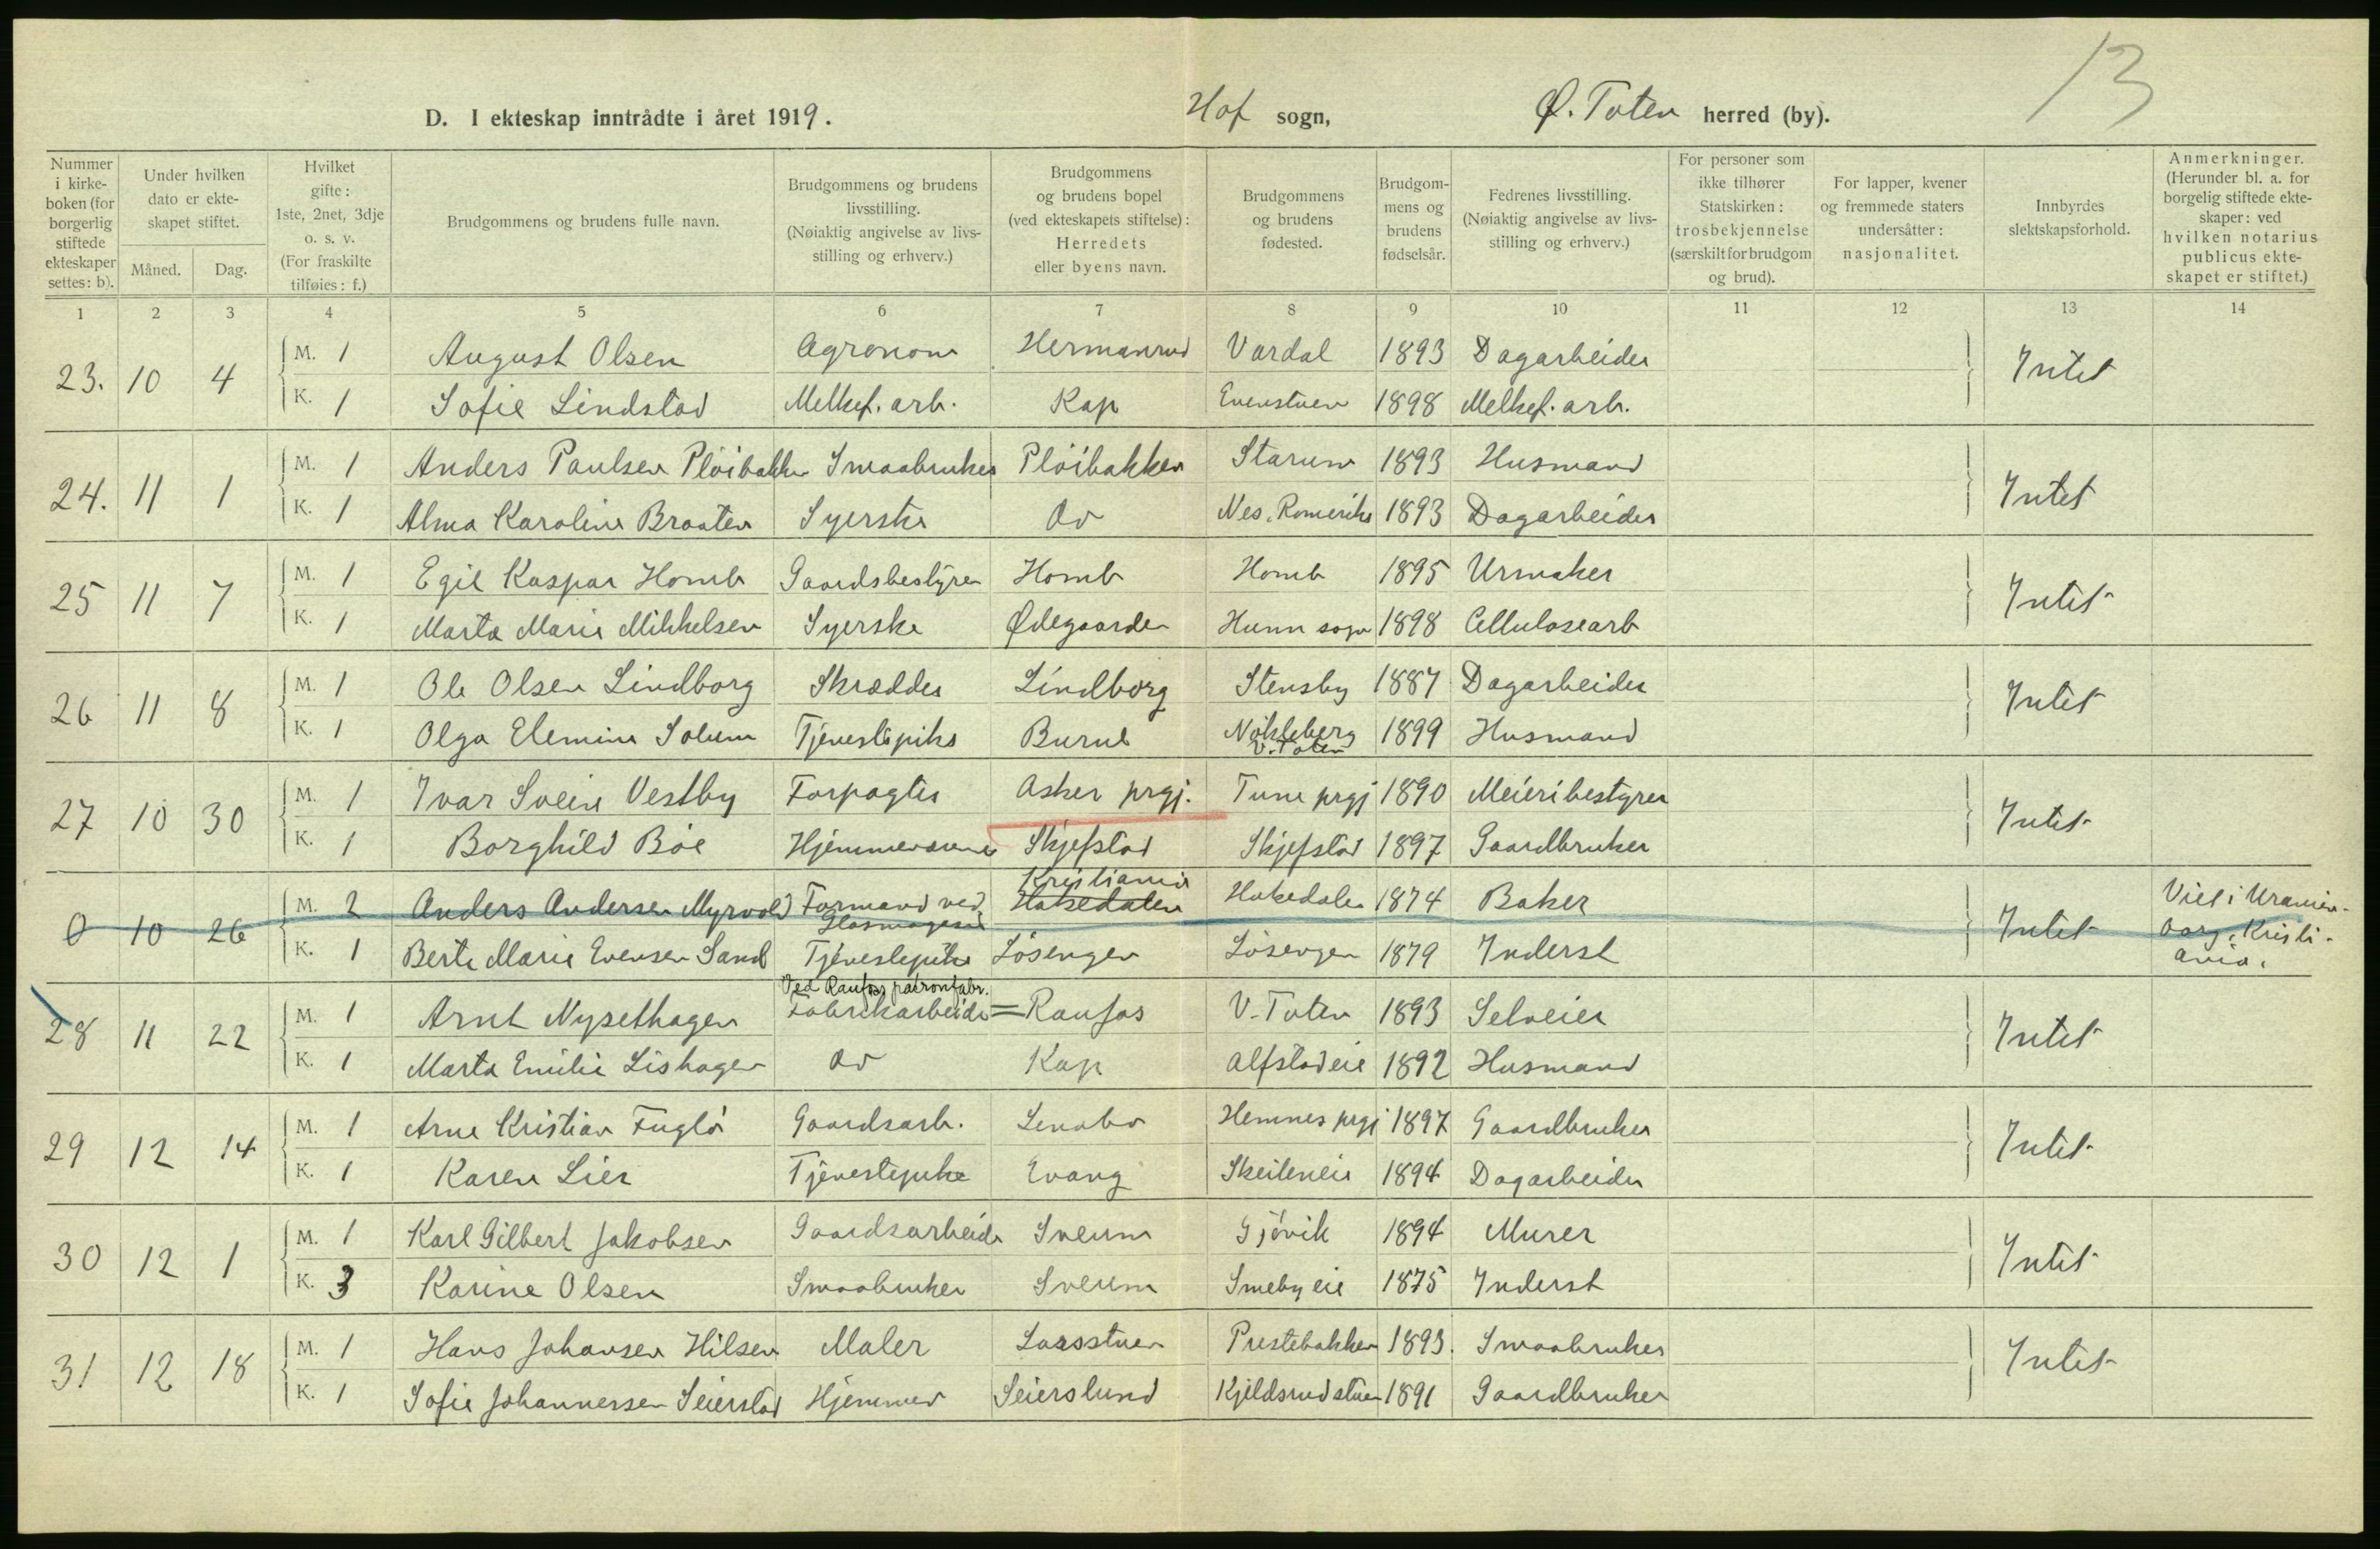 13
D. I ekteskap inntrådte i året 1919. Hof sogn, Ø. Toten herred (by).
Nummer i kirkeboken (for borgerlig stiftede ekteskaper settes: b).
Under hvilken dato er ekteskapet stiftet.
Måned. Dag.
Hvilket gifte: 1ste, 2net, 3dje o. s. v. (For fraskilte tilføies: f.)
Brudgommens og brudens fulle navn.
Brudgommens og brudens livsstilling. (Nøiaktig angivelse av livsstilling og erhverv.)
Brudgommens og brudens bopel (ved ekteskapets stiftelse): Herredets eller byens navn.
Brudgommens og brudens fødested.
Brudgommens og brudens fødselsår.
Fedrenes livsstilling. (Nøiaktig angivelse av livsstilling og erhverv.)
For personer som ikke tilhører Statskirken: trosbekjennelse (særskilt for brudgom og brud).
For lapper, kvener og fremmede staters undersåtter: nasjonalitet.
Innbyrdes slektskapsforhold.
Anmerkninger. (Herunder bl. a. for borgelig stiftede ekteskaper: ved hvilken notarius publicus ekteskapet er stiftet.)
1 2 3 4 5 6 7 8 9 10 11 12 13 14
23. 10 4 M. 1 August Olsen Agronom Hermanrud Vardal 1893 Dagarbeider Intet
K. 1 Sofie Lindstad Melkef. arb. Kap Evenstuen 1898 Melkef. arb.
24. 11 1 M. 1 Anders Paulsen Plöibakken Smaabruker Plöibakken Starum 1893 Husmand Intet
K. 1 Alma Karoline Braaten Syerske do Nes, Romerike 1893 Dagarbeider
25 11 7 M. 1 Egil Kaspar Homb Gaardsbestyrer Homb Homb 1895 Urmaker Intet
K. 1 Marta Marie Mikkelsen Syerske Ødegaarden Hunn sogn 1898 Cellulosearb
26 11 8 M. 1 Ole Olsen Lindborg Skrædder Lindborg Stensby 1887 Dagarbeider Intet
K. 1 Olga Elemine Solum Tjenestepike Burul Nökleberg V. Toten 1899 Husmand
27 10 30 M. 1 Ivar Svein Vestby Forpagter Asker prgj. Tune prgj 1890 Meieribestyrer Intet
K. 1 Borghild Böe Hjemmeværende Skjefstad Skjefstad 1897 Gaardbruker
0 10 26 M. 2 Anders Andersen Myrvold Formand ved Glasmagasin Hakedalen Kristiania Hakedalen 1874 Baker Intet Viet i Uranienborg, Kristiania.
K. 1 Berte Marie Evensen Sand Tjenestepike Lösengen Lösengen 1879 Inderst
28 11 22 M. 1 Arnt Nysethagen Ved Raufos patronfabr. Fabrikarbeider = Raufos V. Toten 1893 Selveier Intet
K. 1 Marta Emilie Lishagen do Kap Alfstadeie 1892 Husmand
29 12 14 M. 1 Arne Kristian Fuglö Gaardsarb. Lenabo Hemnes prgj 1897 Gaardbruker Intet
K. 1 Karen Lier Tjenestepike Evang Skeileneie 1894 Dagarbeider
30 12 1 M. 1 Karl Gilbert Jakobsen Gaardsarbeider Sveum Gjövik 1894 Murer Intet
K. 3 Karine Olsen Smaabruker Sveum Smebyeie 1875 Inderst
31 12 18 M. 1 Hans Johansen Hilsen Maler Larsstuen Prestebakken 1893. Smaabruker Intet
K. 1 Sofie Johannessen Seierstad Hjemmev Seierslund Kjeldsrudstuen 1891 Gaardbruker